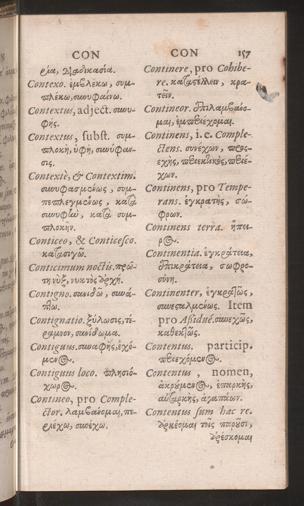 CON
CON 157
ρία, διαδικασία.
Contexo. ἐμπλέκω, συμ-
πλέκω, συνυφαίνω.
Contextus, adject. συνυ-
φής.
Contextus, subst. συμ-
πλοκὴ, ὑφὴ, συνύφαν-
σις.
Contextè, & Contextim.
συνυφασμένως, συμ-
πεπλεγμένως, κατὰ
συνυφὴν, κατὰ συμ-
πλοκήν.
Conticeo, & Conticesco.
κατασιγῶ.
Conticinium noctis. πρώ-
τη νὺξ, νυκτὸς ἀρχή.
Contigno.
Contignatio. ξύλωσις,
Contiguus. συναφὴς, ἐχό-
μενος.
Contiguus loco. πλησιό-
χωρος.
Contineo, pro Comple-
ctor. λαμβάνομαι, πε-
ριέχω, συνέχω.
Continere, pro Cohibe-
re. καταστέλλειν, κρα-
τεῖν.
Contineor. ἐπιλαμβάνο-
μαι, ἐμπεριέχομαι.
Continens, i.e. Comple-
ctens. συνέχων, προσ-
εχὴς, περιεκτικὸς, περιέ-
χων.
Continens, pro Tempe-
rans. ἐγκρατὴς, σώ-
φρων.
Continens terra. ἤπει-
ρος.
Continentia. ἐγκράτεια,
ἐπικράτεια, σωφρο-
σύνη.
Continenter, ἐγκρατῶς,
συνεσταλμένως. Item
pro Assiduè. συνεχῶς,
καθεξῆς.
Contentus. particip.
περιεχόμενος.
Contentus, nomen,
ἀρκούμενος, ἐπαρκὴς,
αὐτάρκης, ἀγαπῶν.
Contentus sum hac re.
ἀρκέομαι τοῖς παροῦσι,
ἀρέσκομαι